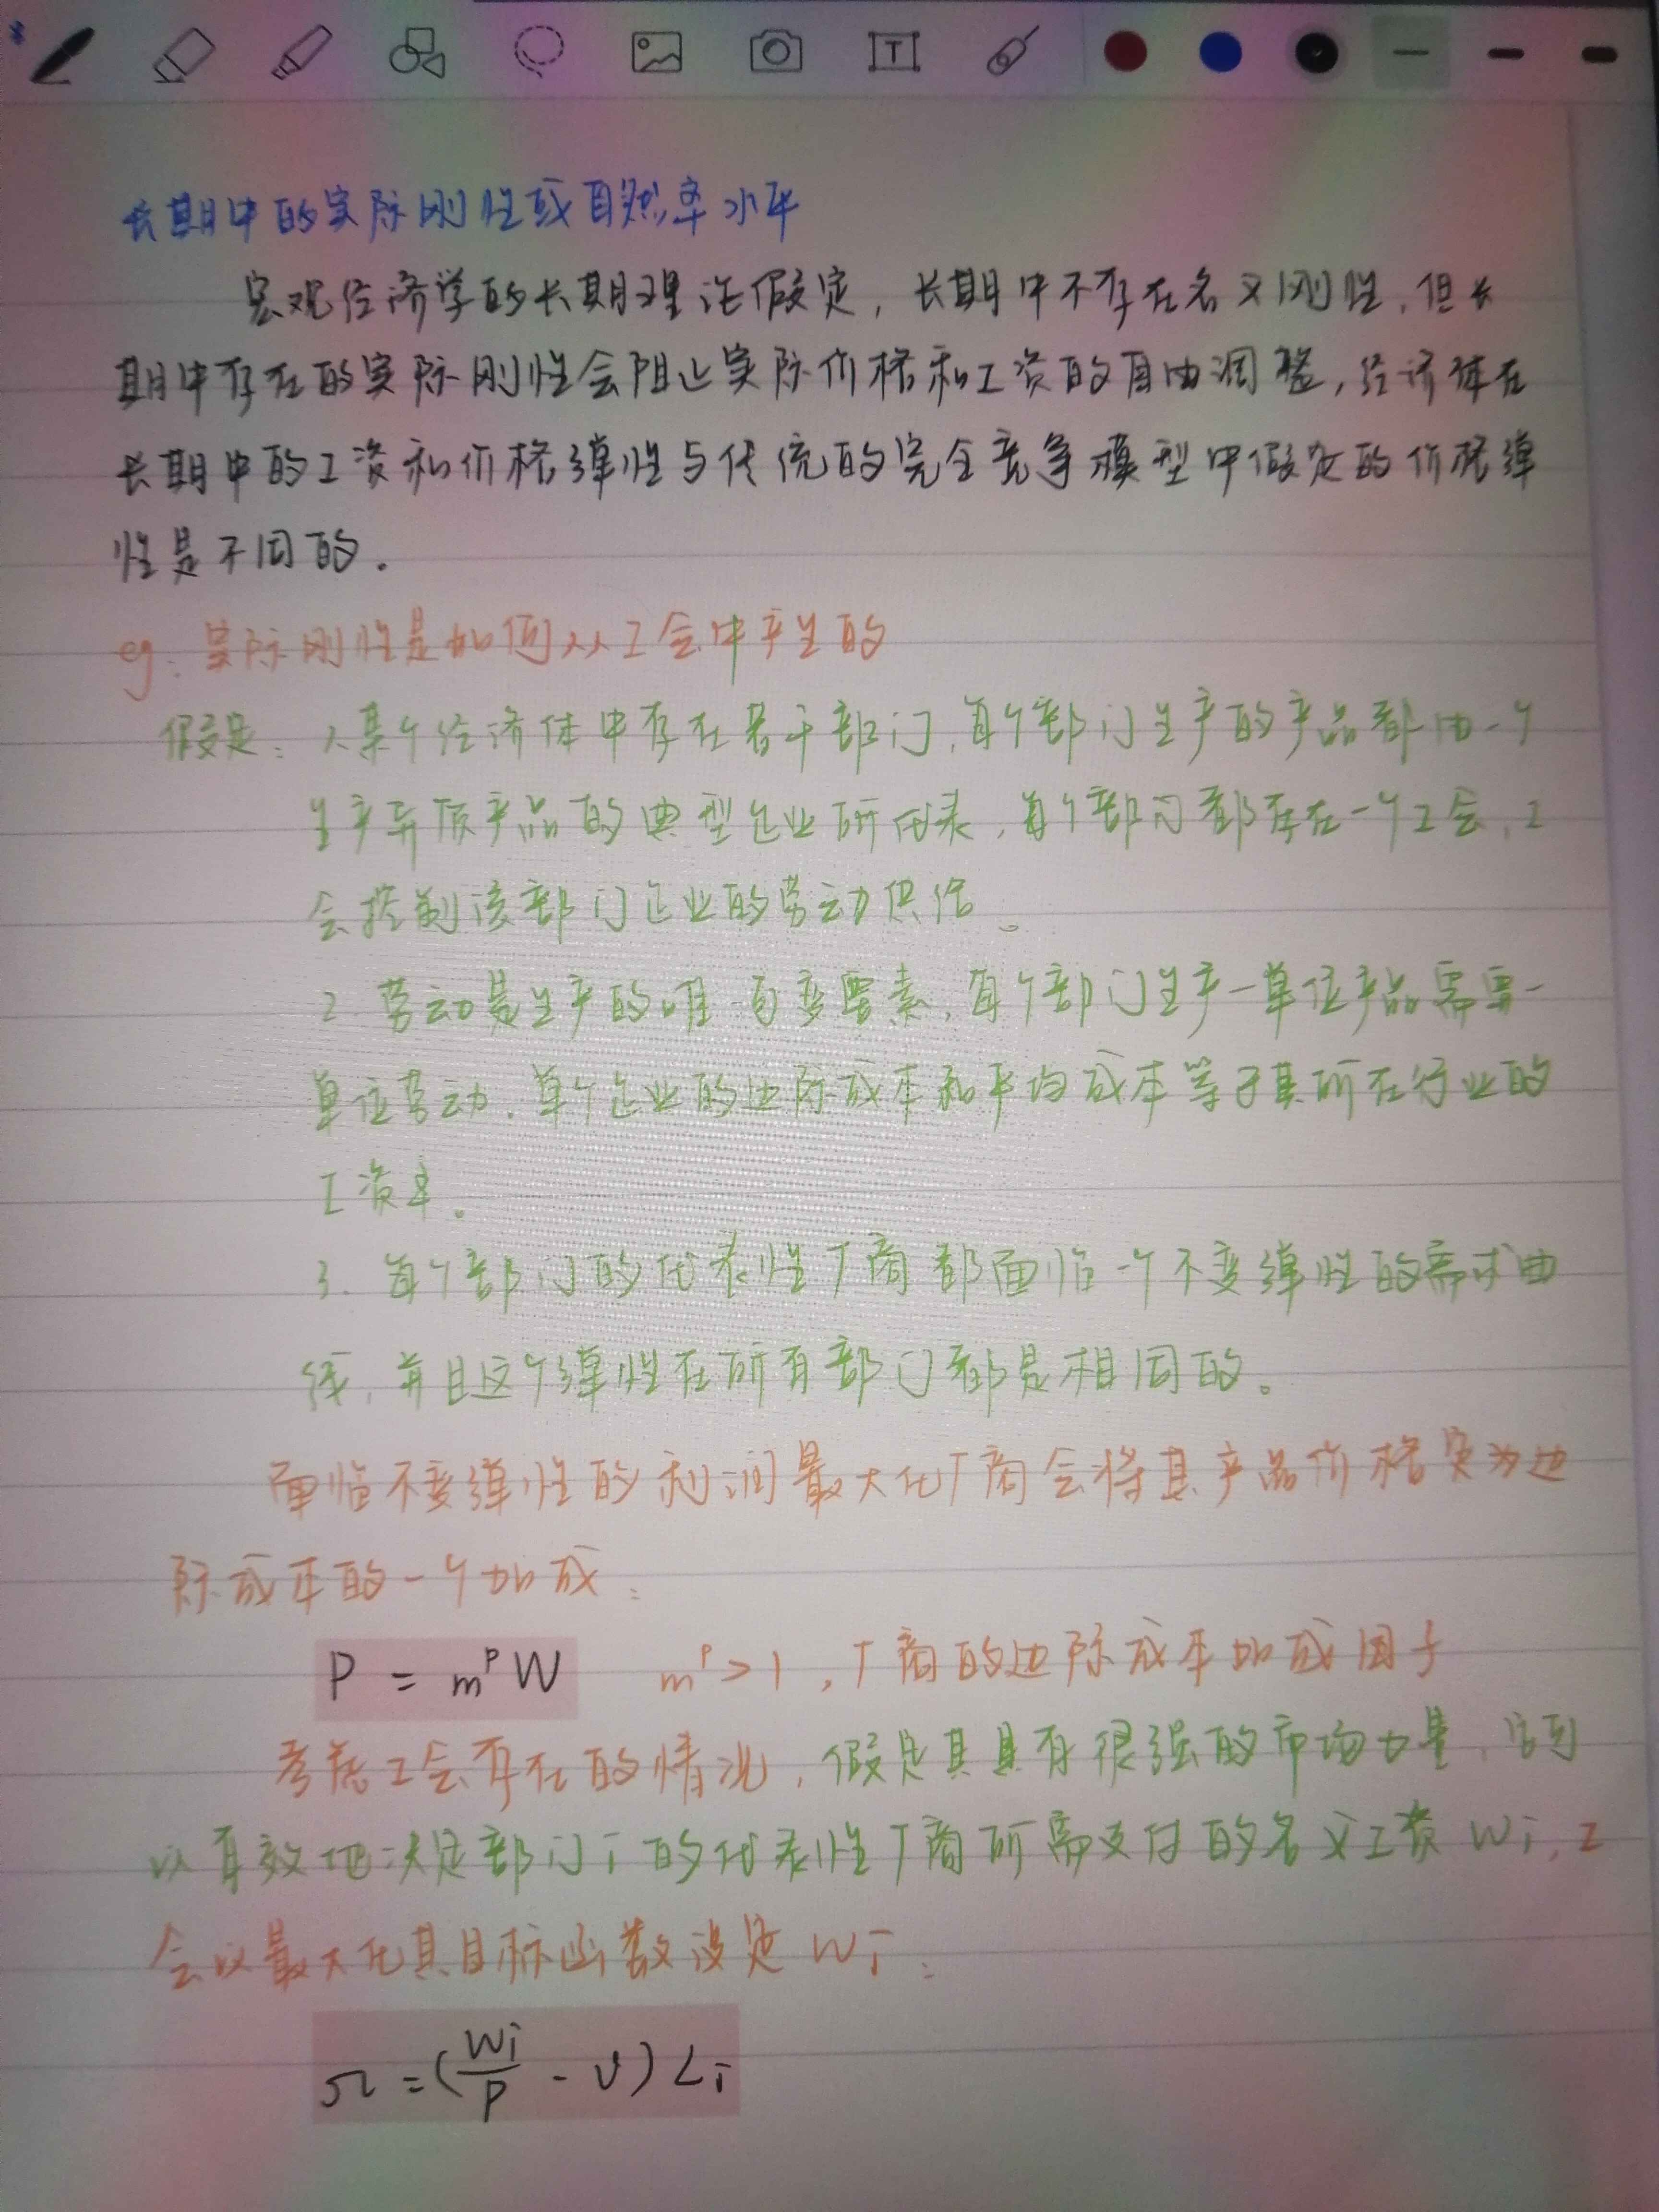 长期中的实际刚性或自然率水平
宏观经济学的长期理论假定，长期中不存在名义刚性，但长
期中存在的实际刚性会阻止实际价格和工资的自由调整，经济体在
长期中的工资和价格弹性与传统的完全竞争模型中假定的价格弹
性是不同的.
eg: 实际刚性是如何从工会中产生的
假定: 1.某个经济体中存在若干部门,每个部门生产的产品都由一个
生产异质产品的典型企业所代表,每个部门都存在一个工会,工
会控制该部门企业的劳动供给。
2. 劳动是生产的唯一可变要素,每个部门生产一单位产品需要一
单位劳动.单个企业的边际成本和平均成本等于其所在行业的
工资率。
3. 每个部门的代表性厂商都面临一个不变弹性的需求曲
线,并且这个弹性在所有部门都是相同的。
面临不变弹性的利润最大化厂商会将其产品价格定为边
际成本的一个加成:
P = m^P W m^P > 1 ,厂商的边际成本加成因子
考虑工会存在的情况,假定其具有很强的市场力量,它可
以有效地决定部门i的代表性厂商所需支付的名义工资 Wi,工
会以最大化其目标函数设定 Wi:
Ω = (Wi/P - υ) Li